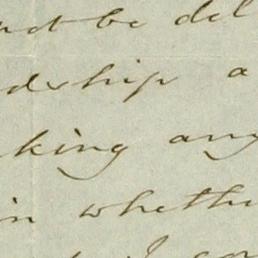 not be del
dship a
king any
in whethe